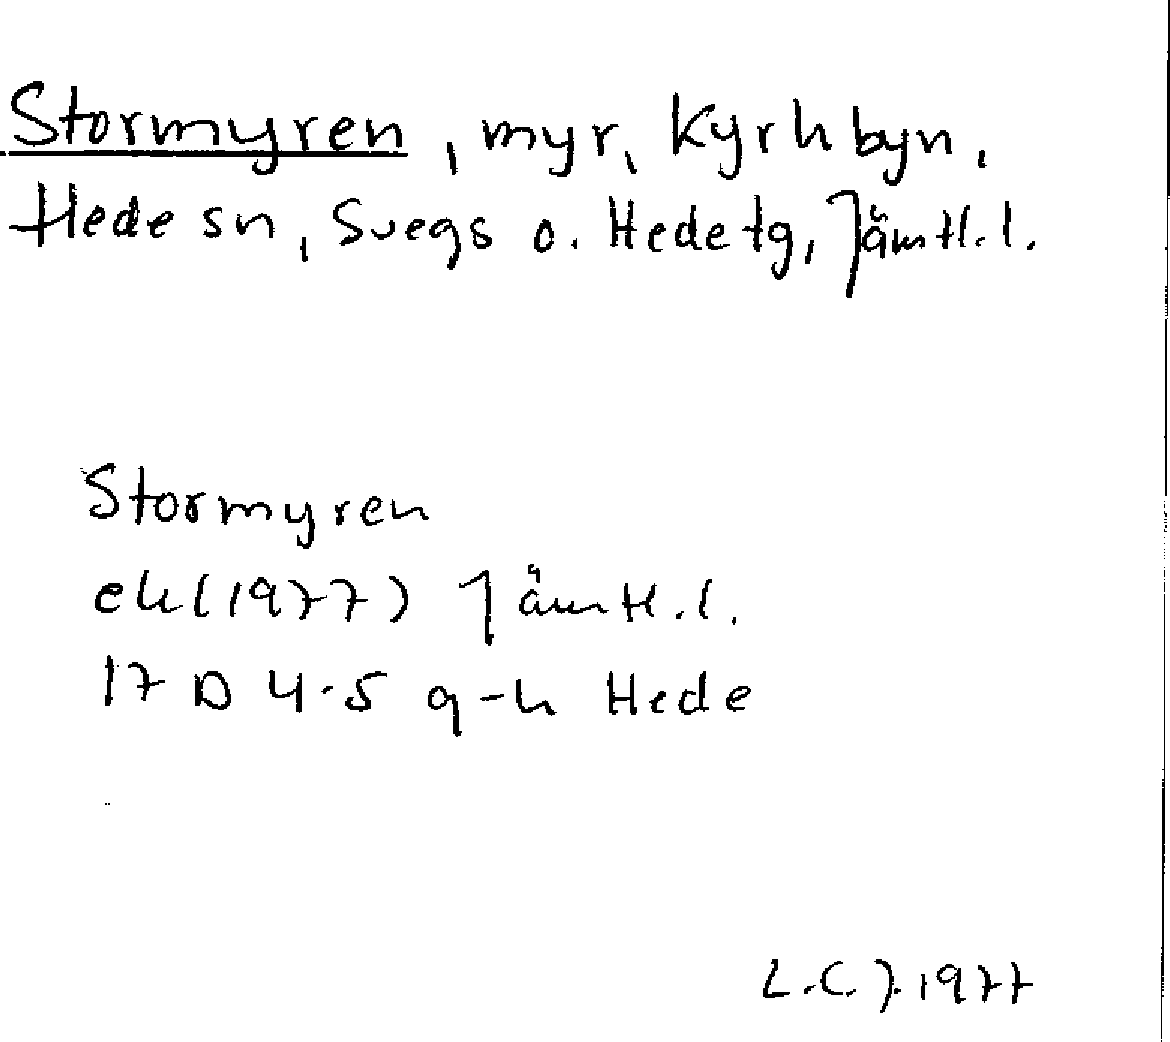 Stormyren, myr, Kyrkbyn,
Hede sn, Svegs o. Hede tg, Jämtl. l.
Stormyren
ek (1977) Jämtl. l.
17 D 4-5 g-h Hede
L.C.J. 1977